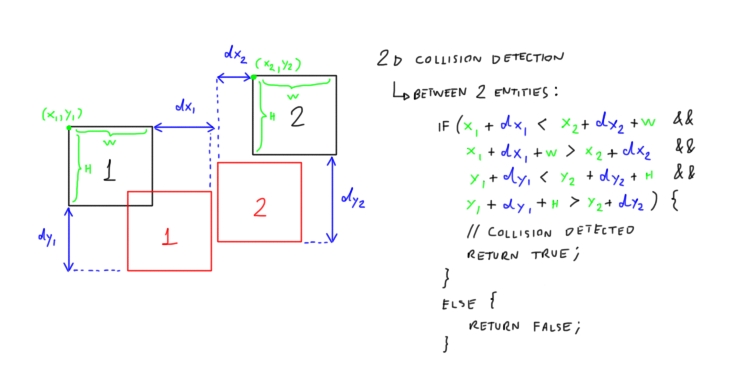 dx₂
(x₂,y₂)
W
H
2
(x₁,y₁)
dx₁
W
H
1
dy₁
1
2
dy₂
2D COLLISION DETECTION
↳ BETWEEN 2 ENTITIES:
IF (x₁ + dx₁ < x₂ + dx₂ + W &&
x₁ + dx₁ + W > x₂ + dx₂ &&
y₁ + dy₁ < y₂ + dy₂ + H &&
y₁ + dy₁ + H > y₂ + dy₂) {
// COLLISION DETECTED
RETURN TRUE;
}
ELSE {
RETURN FALSE;
}